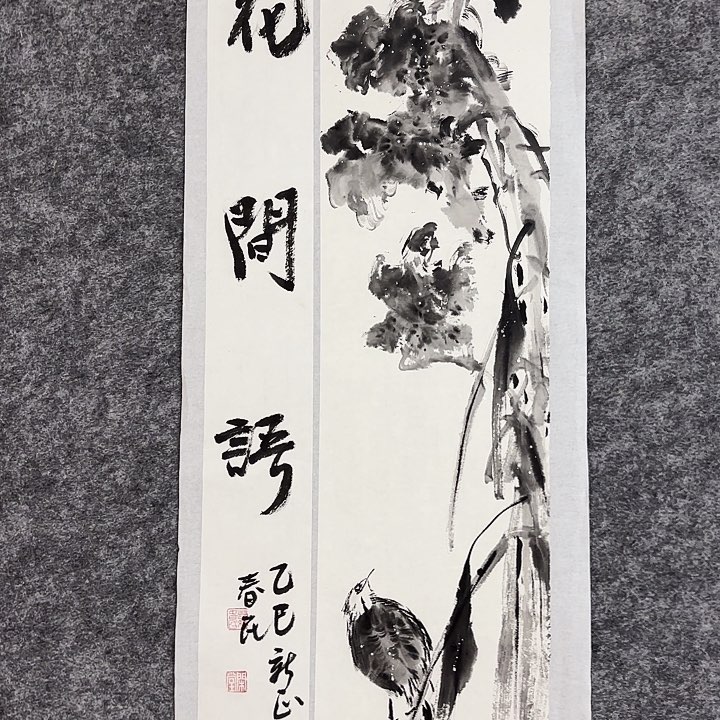 花間語
乙巳新正
春